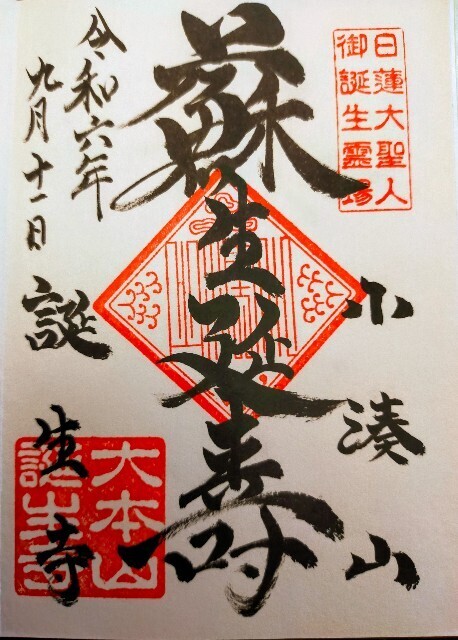 日蓮大聖人
御誕生靈場
小湊山
蘇生延壽
令和六年
九月十一日
誕生寺
大本山
誕生寺